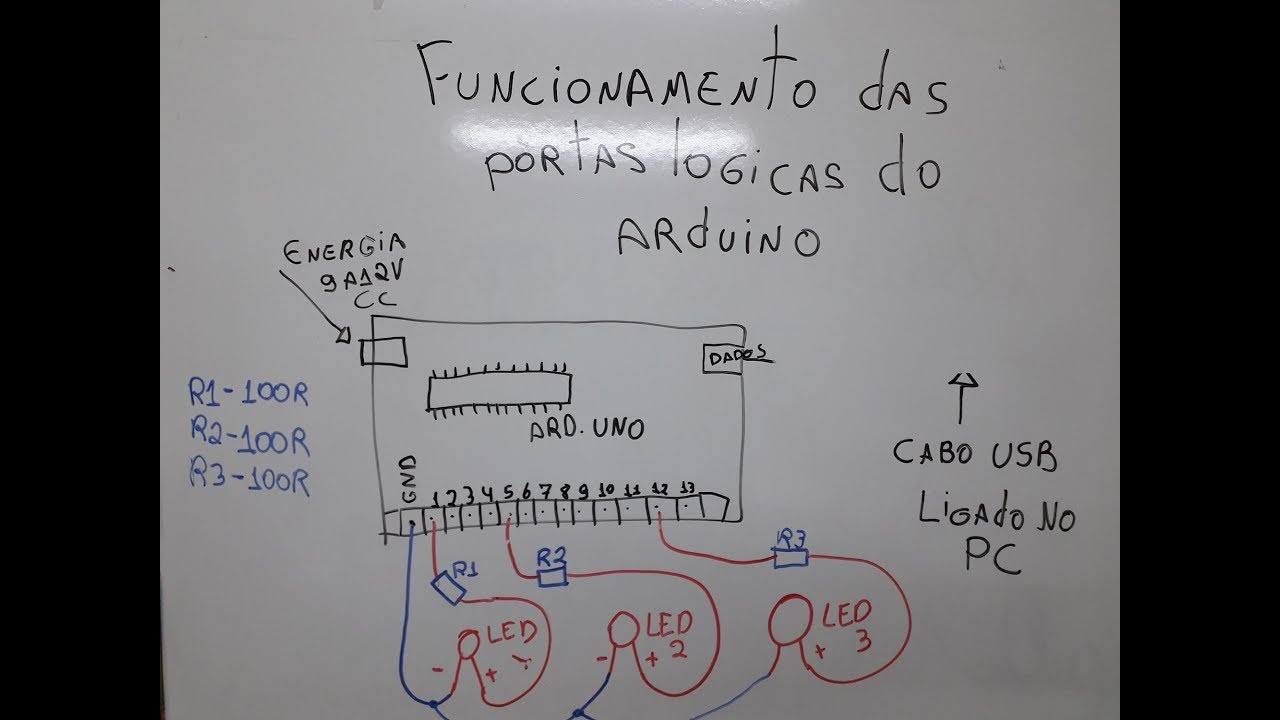 FUNCIONAMENTO das
PORTAS LOGICAS do
ARduiNO
ENERGiA
9A12V
CC
DADOS
R1-100R
R2-100R
R3-100R
ARD. UNO
CABO USB
LIGAdo NO
PC
GND
1 2 3 4 5 6 7 8 9 10 11 12 13
R1
R2
R3
LED
- +
LED
- + 2
LED
+ 3